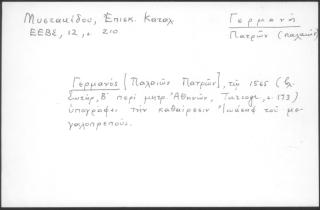 Μυστακίδου, Ἐπισκ. Καταλ.
ΕΕΒΣ, 12, σ. 210
Γερμανὸ
Πατρῶν (παλαιῶν)
Γερμανὸς [Παλαιῶν Πατρῶν], τῷ 1565 (βλ.
Σωτήρ, Β´ περὶ μητρ. Ἀθηνῶν, σ. 173)
ὑπογράφει τὴν καθαίρεσιν Ἰωάσαφ τοῦ με-
γαλοπρεποῦς.